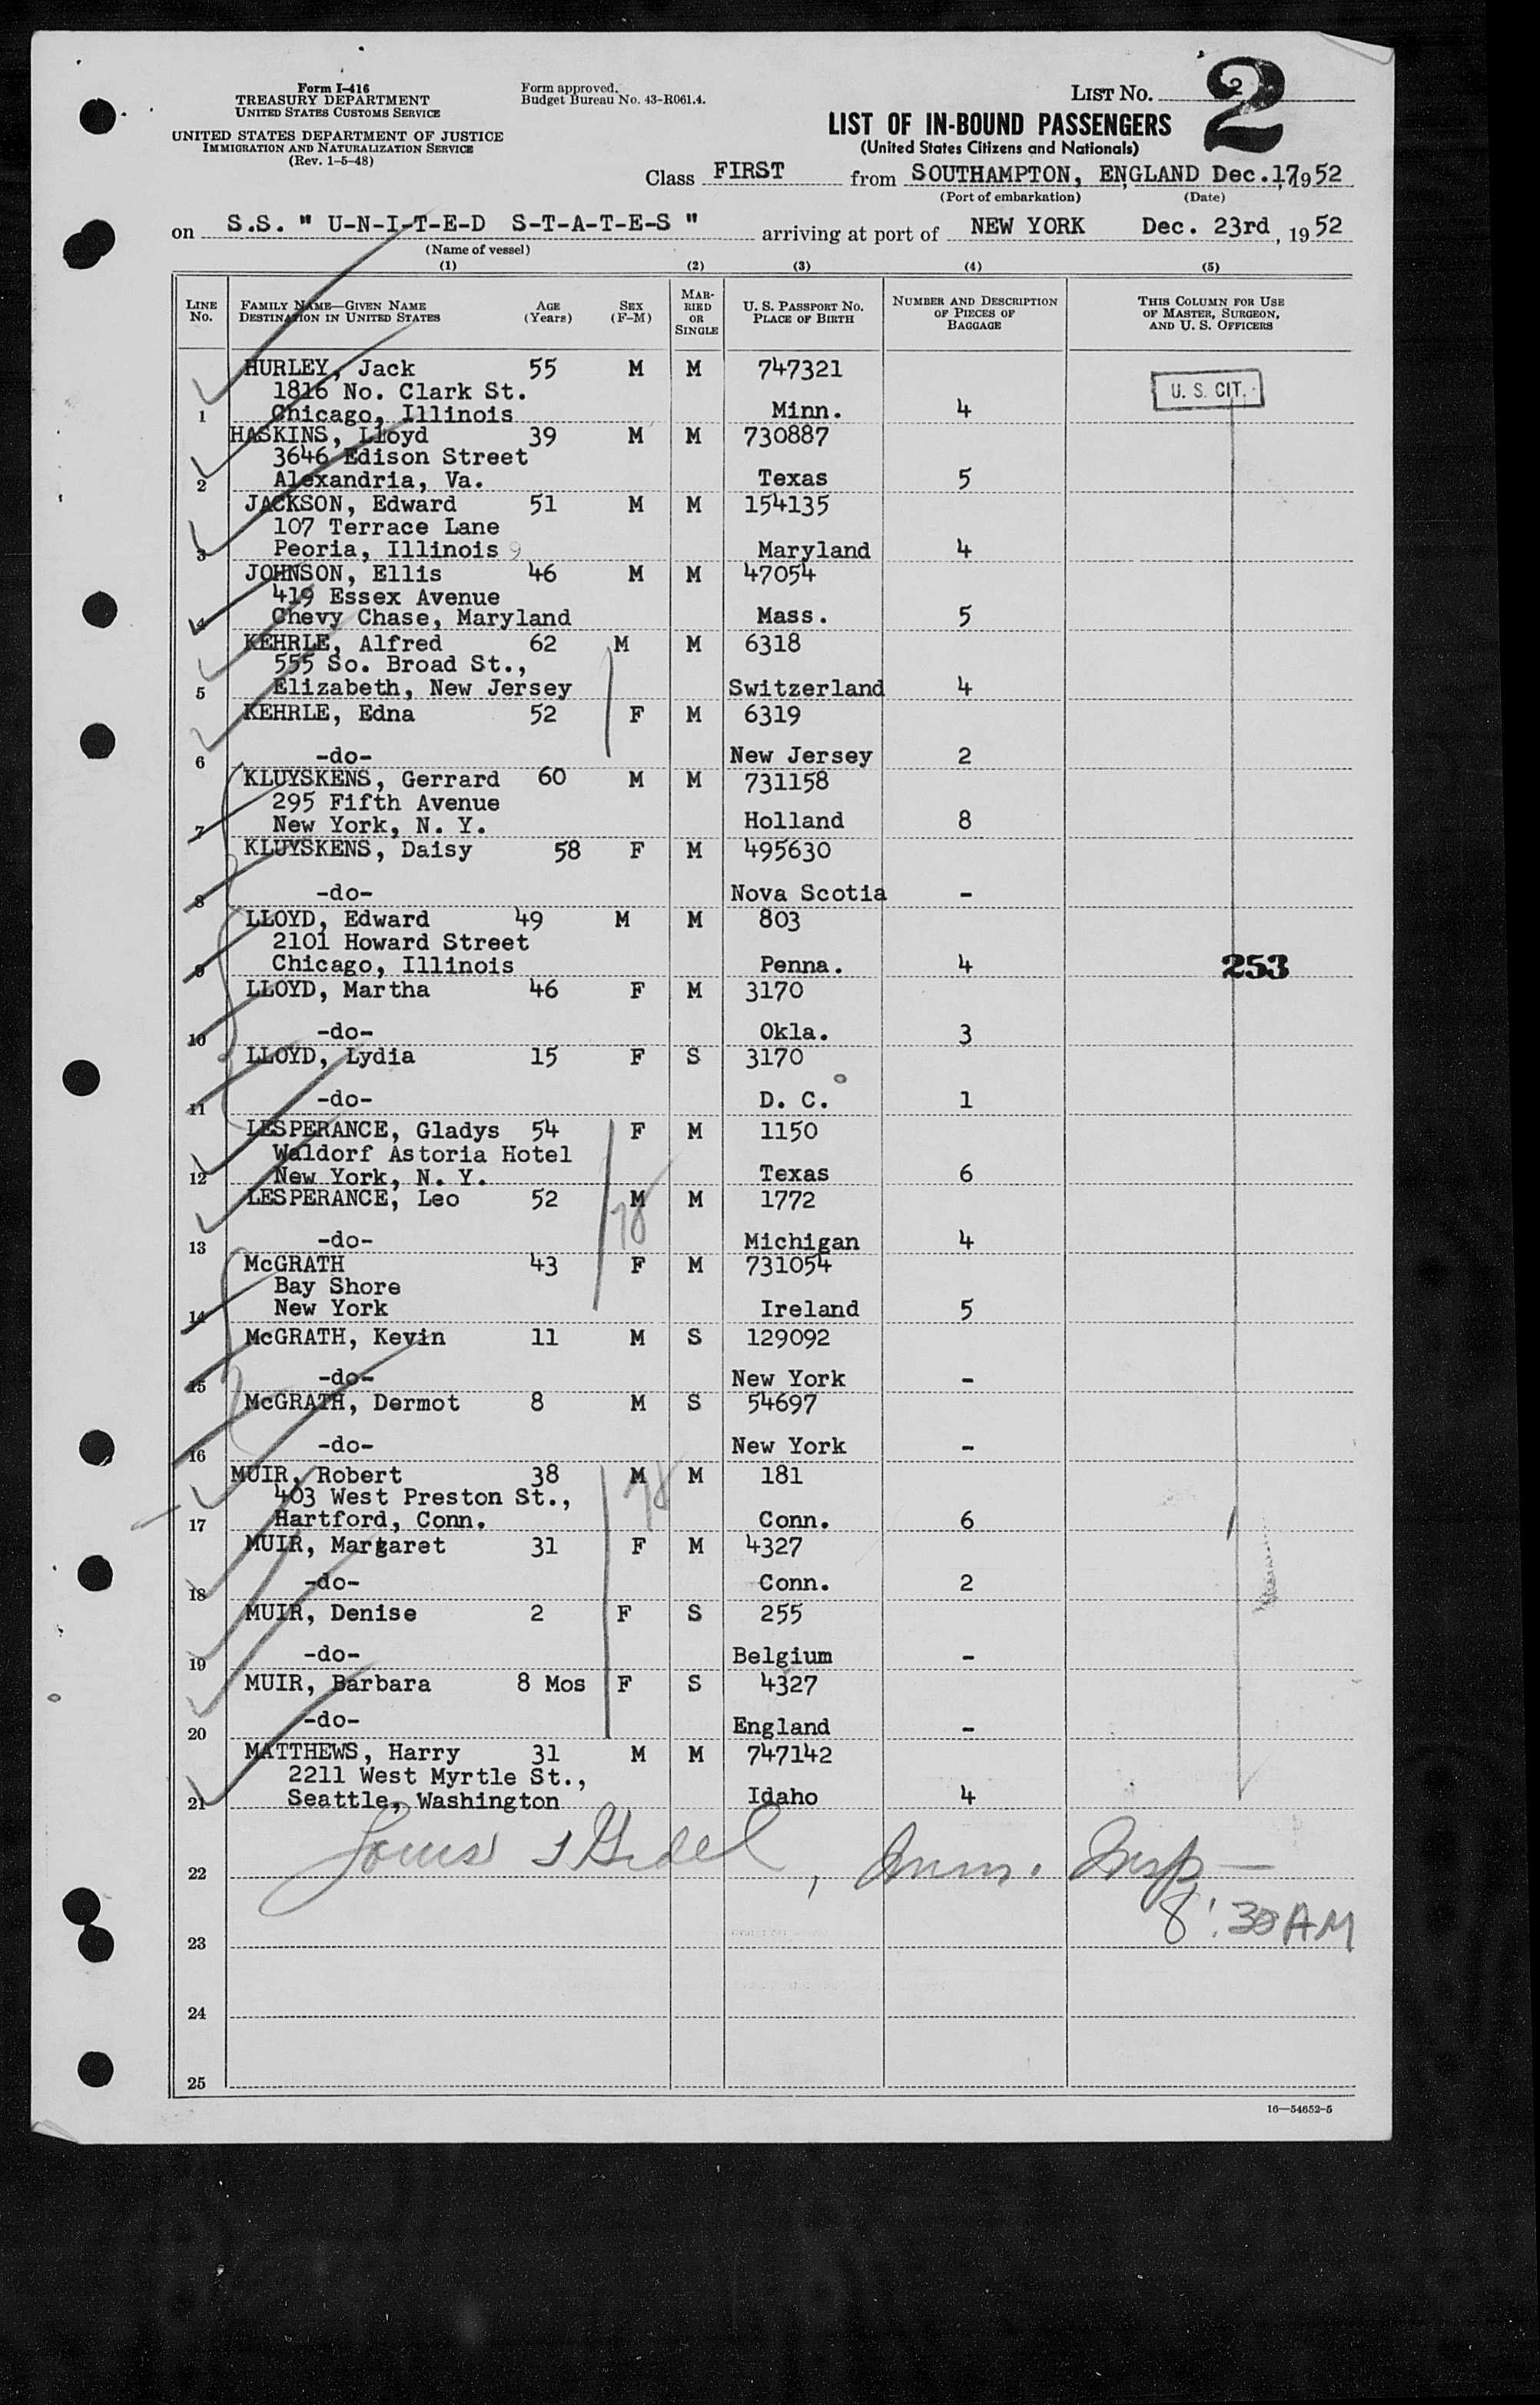 Form I-416
TREASURY DEPARTMENT
UNITED STATES CUSTOMS SERVICE
UNITED STATES DEPARTMENT OF JUSTICE
IMMIGRATION AND NATURALIZATION SERVICE
(Rev. 1-5-48)
Form approved.
Budget Bureau No. 43-R061.4.
LIST No. 2
2
LIST OF IN-BOUND PASSENGERS
(United States Citizens and Nationals)
Class FIRST from SOUTHAMPTON, ENGLAND Dec.17, 1952
(Port of embarkation) (Date)
on S.S. " U-N-I-T-E-D S-T-A-T-E-S " arriving at port of NEW YORK Dec. 23rd, 1952
(Name of vessel)
(1) (2) (3) (4) (5)
LINE No. FAMILY NAME—GIVEN NAME DESTINATION IN UNITED STATES AGE (Years) SEX (F-M) MARRIED OR SINGLE U. S. PASSPORT No. PLACE OF BIRTH NUMBER AND DESCRIPTION OF PIECES OF BAGGAGE THIS COLUMN FOR USE OF MASTER, SURGEON, AND U. S. OFFICERS
HURLEY, Jack 55 M M 747321
1816 No. Clark St. U. S. CIT.
1 Chicago, Illinois Minn. 4
HASKINS, Lloyd 39 M M 730887
3646 Edison Street
2 Alexandria, Va. Texas 5
JACKSON, Edward 51 M M 154135
107 Terrace Lane
3 Peoria, Illinois Maryland 4
JOHNSON, Ellis 46 M M 47054
419 Essex Avenue
4 Chevy Chase, Maryland Mass. 5
KEHRLE, Alfred 62 M M 6318
555 So. Broad St.,
5 Elizabeth, New Jersey Switzerland 4
KEHRLE, Edna 52 F M 6319
6 -do- New Jersey 2
KLUYSKENS, Gerrard 60 M M 731158
295 Fifth Avenue
7 New York, N. Y. Holland 8
KLUYSKENS, Daisy 58 F M 495630
8 -do- Nova Scotia -
LLOYD, Edward 49 M M 803
2101 Howard Street
9 Chicago, Illinois Penna. 4 253
LLOYD, Martha 46 F M 3170
10 -do- Okla. 3
LLOYD, Lydia 15 F S 3170
11 -do- D. C. 1
LESPERANCE, Gladys 54 F M 1150
Waldorf Astoria Hotel
12 New York, N. Y. Texas 6
LESPERANCE, Leo 52 M M 1772
78
13 -do- Michigan 4
McGRATH 43 F M 731054
Bay Shore
14 New York Ireland 5
McGRATH, Kevin 11 M S 129092
15 -do- New York -
McGRATH, Dermot 8 M S 54697
16 -do- New York -
MUIR, Robert 38 M M 181
78
403 West Preston St.,
17 Hartford, Conn. Conn. 6
MUIR, Margaret 31 F M 4327
18 -do- Conn. 2
MUIR, Denise 2 F S 255
19 -do- Belgium -
MUIR, Barbara 8 Mos F S 4327
20 -do- England -
MATTHEWS, Harry 31 M M 747142
2211 West Myrtle St.,
21 Seattle, Washington Idaho 4
22 Louis , Imm. Insp
8:30 AM
23
24
25
16—54652-5